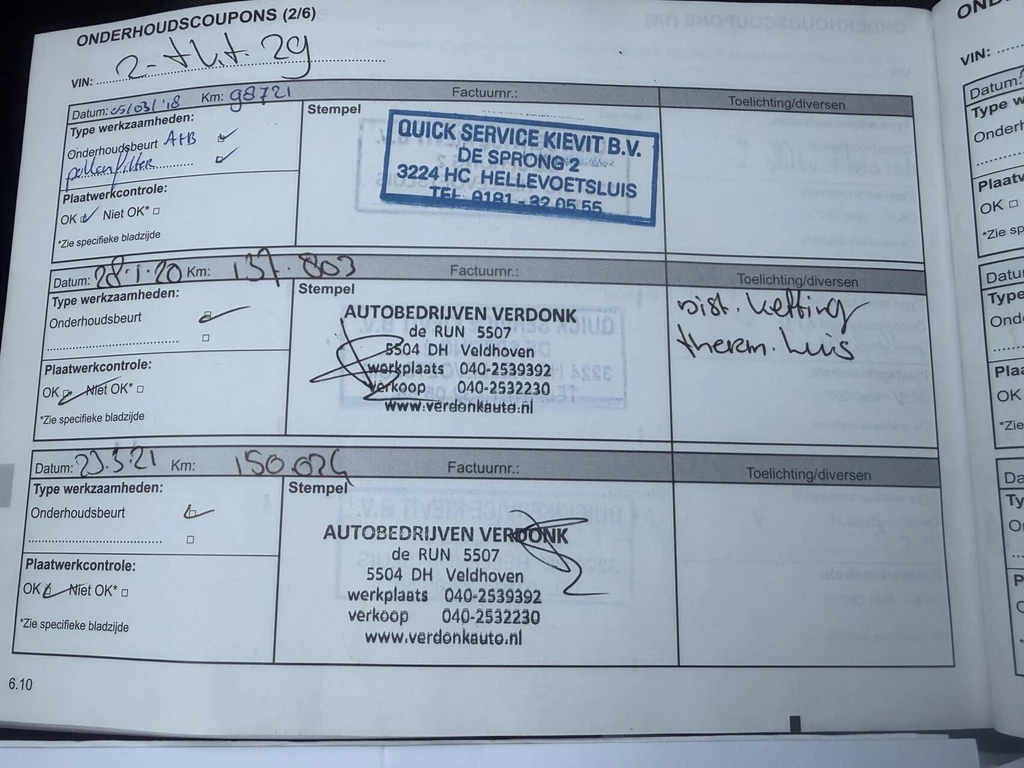 ONDERHOUDSCOUPONS (2/6)
VIN: 2-tht-29
Datum: 05/03/'18 Km: 98721 Factuurnr.: Toelichting/diversen
Type werkzaamheden: Stempel
Onderhoudsbeurt A+B
pollenfilter
Plaatwerkcontrole:
OK Niet OK*
*Zie specifieke bladzijde
QUICK SERVICE KIEVIT B.V.
DE SPRONG 2
3224 HC HELLEVOETSLUIS
TEL. 0181 - 32 05 55
Datum: 28.1.20 Km: 137.803 Factuurnr.: Toelichting/diversen
Type werkzaamheden: Stempel
Onderhoudsbeurt
Plaatwerkcontrole:
OK Niet OK*
*Zie specifieke bladzijde
AUTOBEDRIJVEN VERDONK
de RUN 5507
5504 DH Veldhoven
werkplaats 040-2539392
verkoop 040-2532230
www.verdonkauto.nl
dist. ketting
therm. huis
Datum: 23.3.21 Km: 150.024 Factuurnr.: Toelichting/diversen
Type werkzaamheden: Stempel
Onderhoudsbeurt
Plaatwerkcontrole:
OK Niet OK*
*Zie specifieke bladzijde
AUTOBEDRIJVEN VERDONK
de RUN 5507
5504 DH Veldhoven
werkplaats 040-2539392
verkoop 040-2532230
www.verdonkauto.nl
6.10
VIN:
Datum:
OK
*Zie